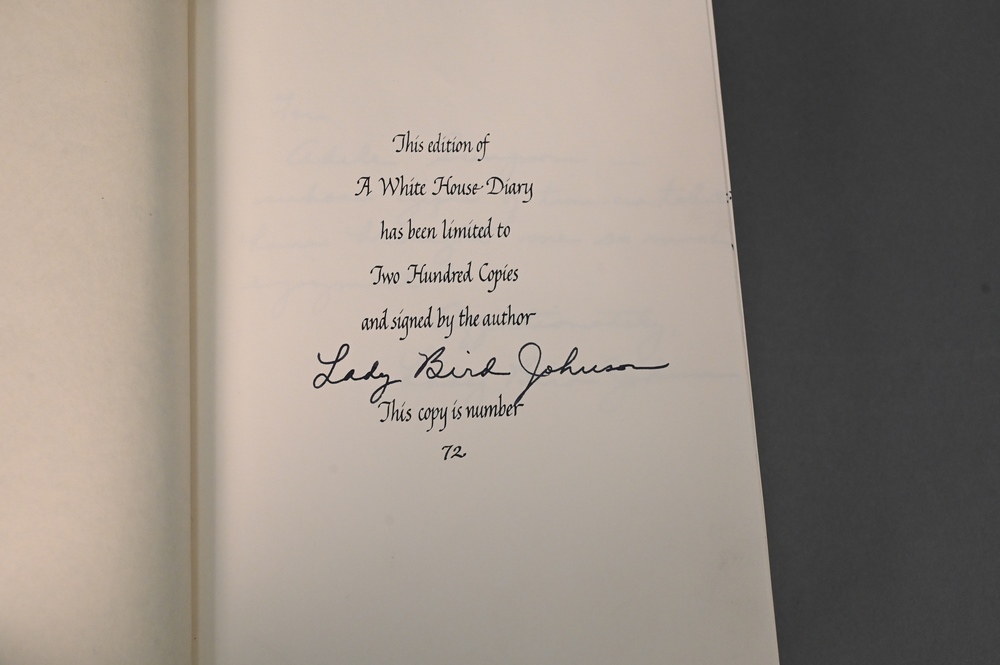 This edition of
A White House Diary
has been limited to
Two Hundred Copies
and signed by the author
Lady Bird Johnson
This copy is number
72